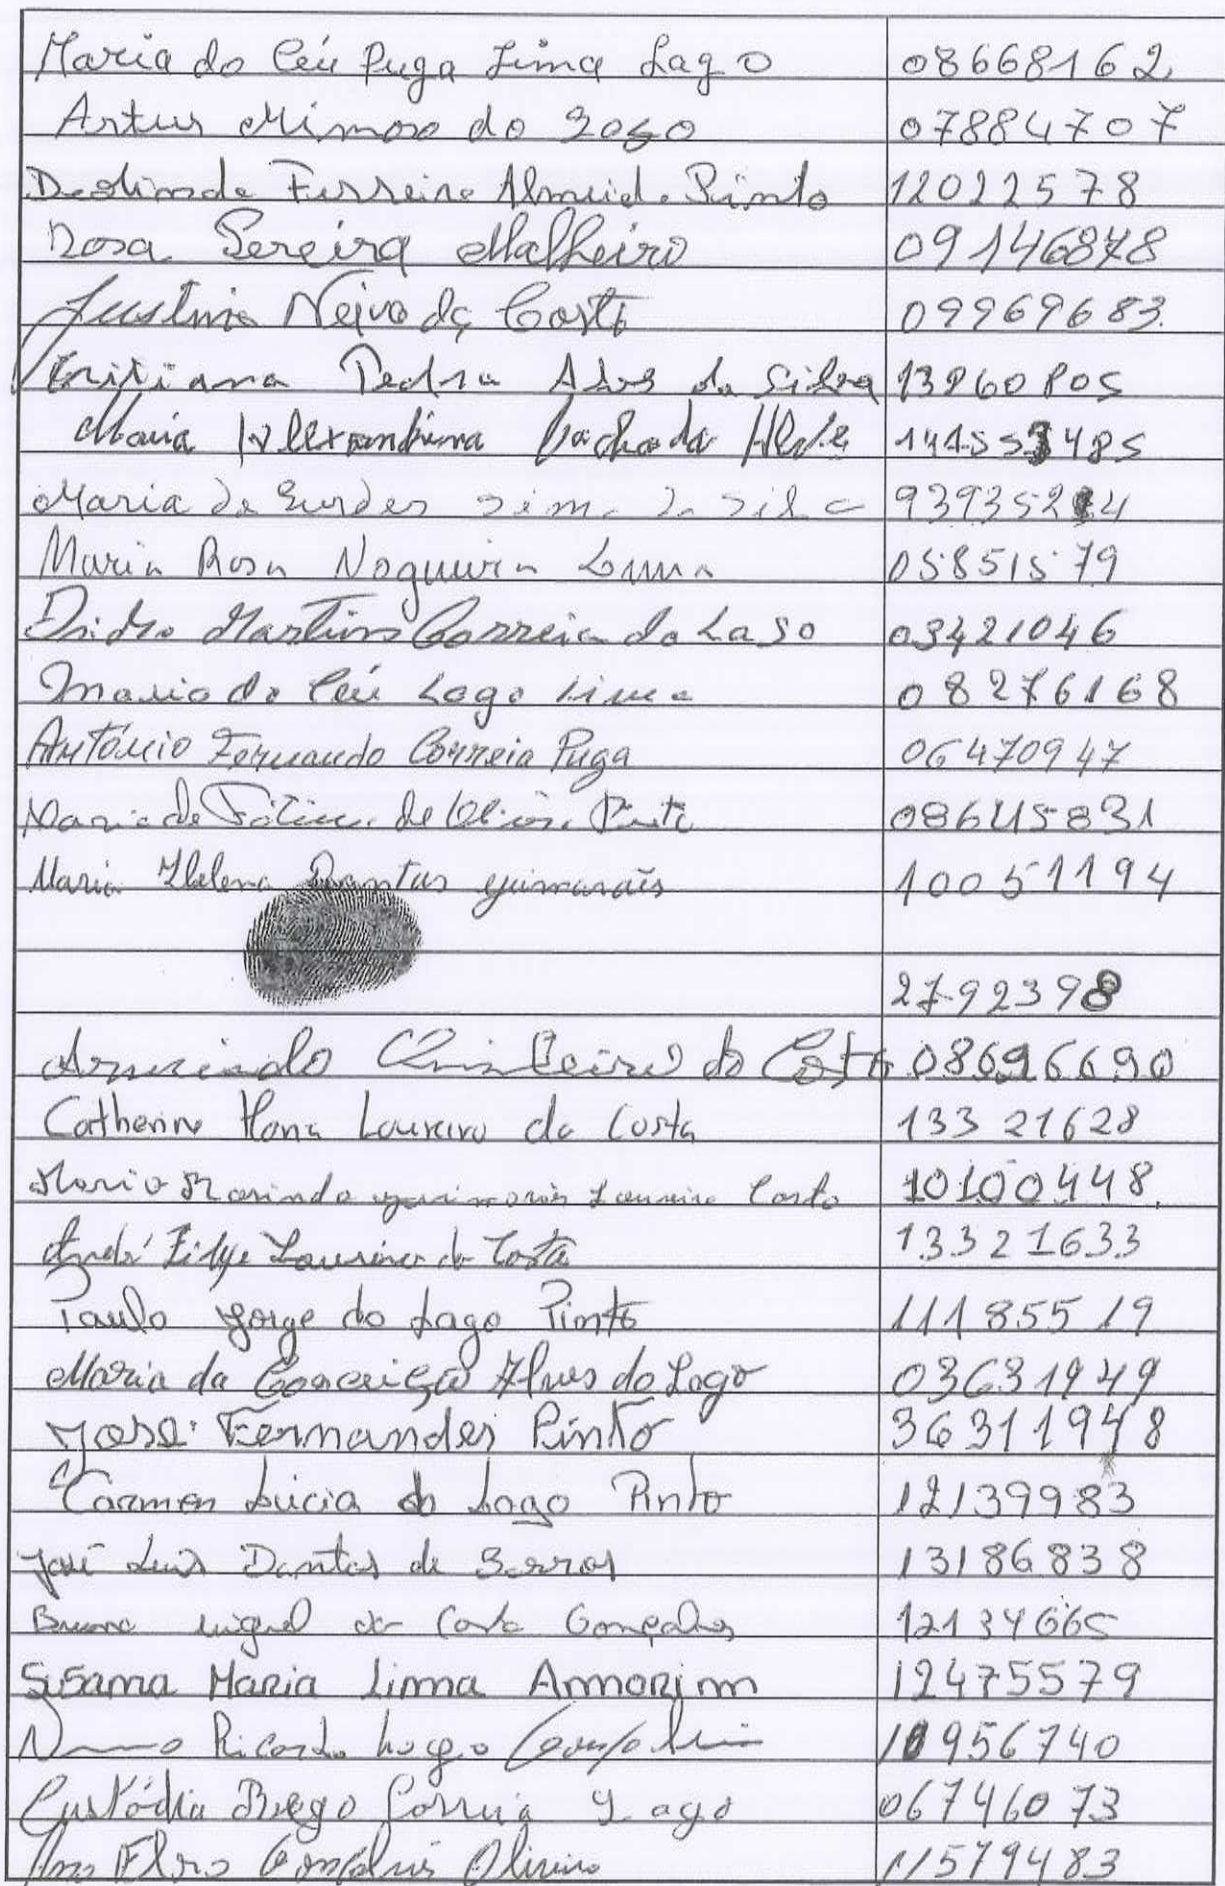 Maria do Céu Puga Lima Lago 08668162
Artur Mimoso do Lago 07884707
Deolinda Ferreira Almeida Pinto 12022578
Rosa Pereira Malheiro 09146878
Justina Neiva da Costa 09969683
Cristiana Pedra Alves da Silva 13960805
Maria Alexandrina Machado 141553485
Maria de Lurdes 93935214
Maria Rosa Nogueira Lima 05851579
Isidro Martins Correia do Lago 03421046
Maria do Céu Lago Lima 08276168
António Fernando Correia Puga 06470947
Maria de Fátima de Pinto 08645831
Maria Helena Dantas guimarães 10051194
2792398
Armindo da Costa 08696690
Catherine Loureiro da Costa 13321628
Maria guimarães Loureiro Costa 10100448
André Filipe Loureiro da Costa 13321633
Paulo Jorge do Lago Pinto 11185519
Maria da Conceição Alves do Lago 03631949
José Fernandes Pinto 36311948
Carmen Lúcia do Lago Pinto 12139983
José Luís Dantas de Barros 13186838
Bruno Miguel da Costa Gonçalves 12134665
Susana Maria Lima Amorim 12475579
Nuno Ricardo Lago Gonçalves 10956740
Custódia Rego Correia Lago 06746073
Gonçalves Oliveira 11579483